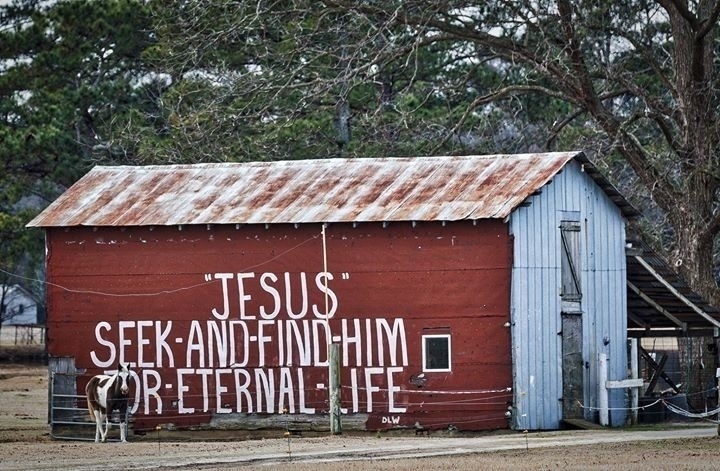 "JESUS"
SEEK-AND-FIND-HIM
FOR-ETERNAL-LIFE
DLW